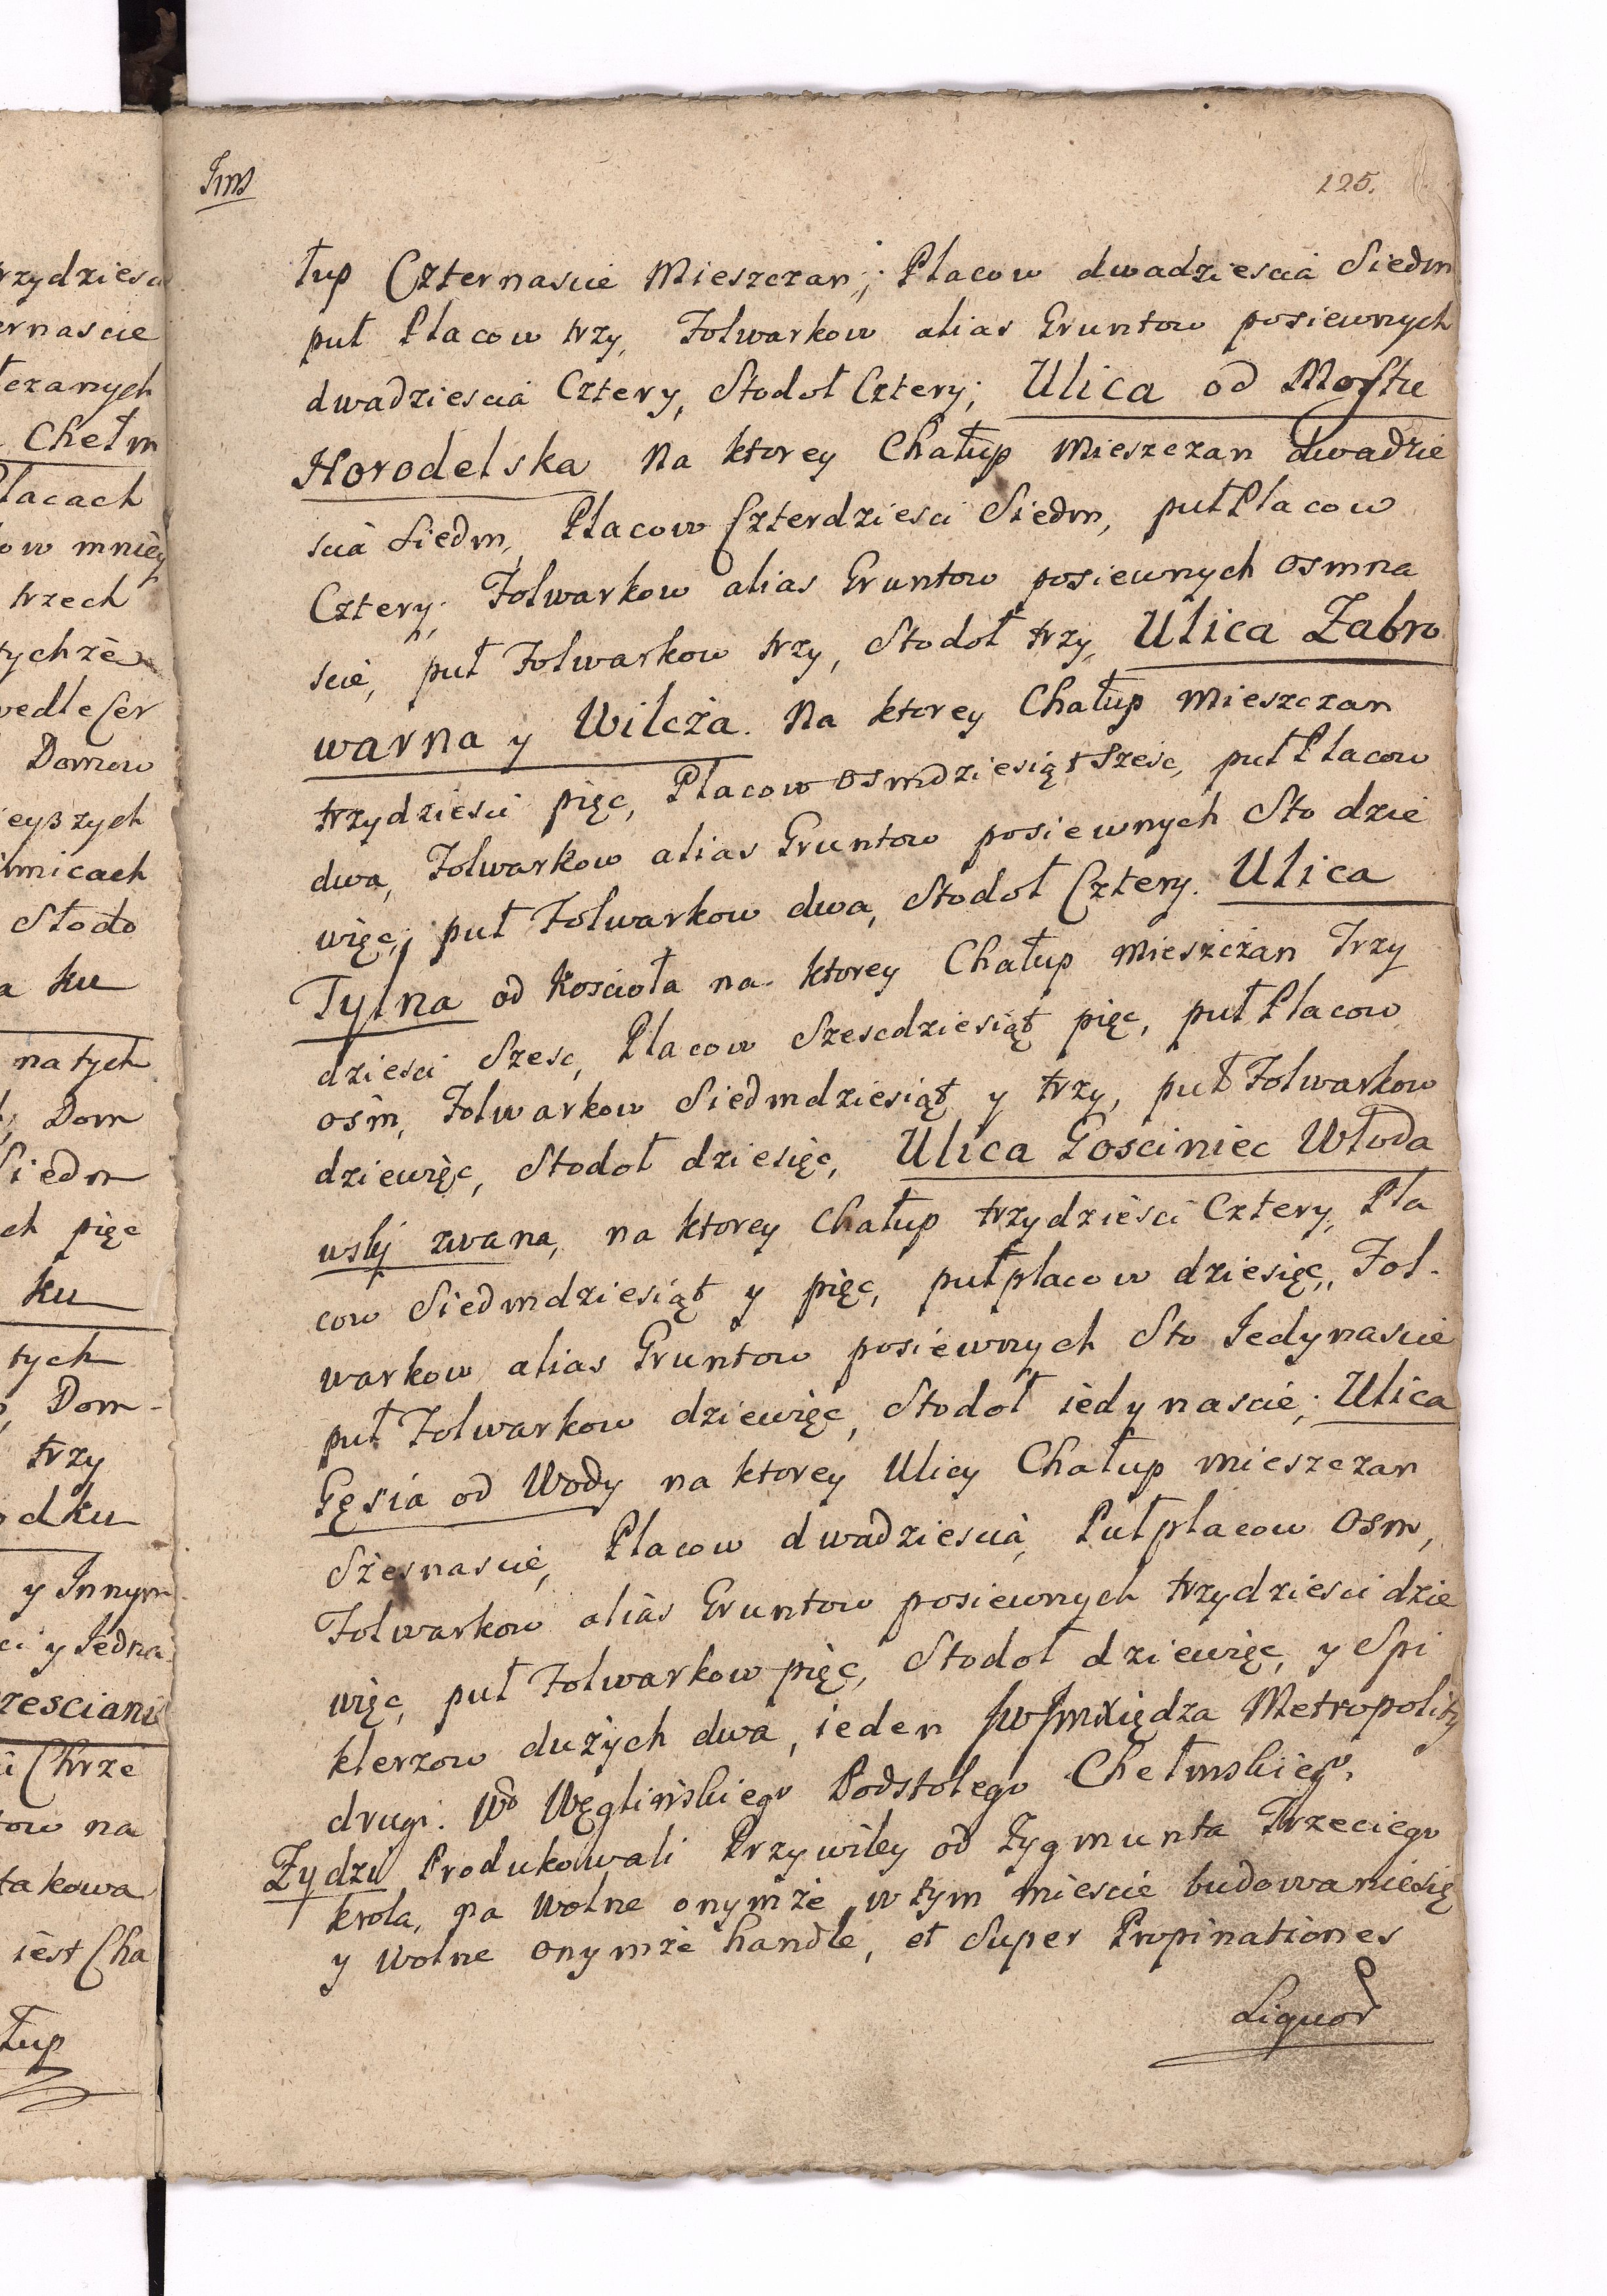 125.
łup Czternascie Mieszczan; Placow dwadziescia Siedm
puł Placow trzy, Folwarkow alias Gruntow posiewnych
dwadziescia Cztery, Stodoł Cztery; Ulica od Mostu
Horodelska Na ktorey Chałup Mieszczan dwadzie
scia Siedm, Placow Czterdziesci Siedm, puł Placow
Cztery, Folwarkow alias Gruntow posiewnych osmna
scie, puł Folwarkow trzy, Stodoł trzy, Ulica Zabro
warna y Wilcza. Na ktorey Chałup Mieszczan
trzydziesci pięc, Placow osmdziesiąt szesc, puł Placow
dwa, Folwarkow alias Gruntow posiewnych Sto dzie
więc; puł Folwarkow dwa, Stodoł Cztery. Ulica
Tylna od Koscioła na ktorey Chałup Mieszczan Trzy
dziesci Szesc, Placow Szescdziesiąt pięc, puł Placow
osm, Folwarkow Siedmdziesiąt y trzy, puł Folwarkow
dziewięc, Stodoł dziesięc, Ulica Gosciniec Włoda
wski zwana, na ktorey Chałup trzydziesci Cztery, Pla
cow Siedmdziesiąt y pięc, puł placow dziesięc, Fol-
warkow alias Gruntow posiewnych Sto Jedynascie
puł Folwarkow dziewięc, Stodoł iedynascie; Ulica
Gęsia od Wody na ktorey Ulicy Chałup mieszczan
Szesnascie, Placow dwadziescia, Puł placow Osm,
Folwarkow alias Gruntow posiewnych trzydziesci dzie
więc, puł Folwarkow pięc, Stodoł dziewięc, y Spi
klerzow dużych dwa, ieden JWJmXiędza Metropolity
drugi. Wo Węglińskiego Podstolego Chełmskiego.
Zydzi Produkowali Przywiley od Zygmunta Trzeciego
krola, na wolne onymże w tym miescie budowanie się
y wolne onymże handle, et Super Propinationes
Liquor
rzydziesci
ernascie
czanych
Chełm
Placach
ow mniey
trzech
tychże
wedle Cer
Domow
eyszych
Stodo
a ku
na tych
Dom
Siedm
ch pięc
ku
tych
Dom-
trzy
dku
y Innym
ci y Jedna
rzesciani
i Chrze
tow na
takowa
iest Cha
łup